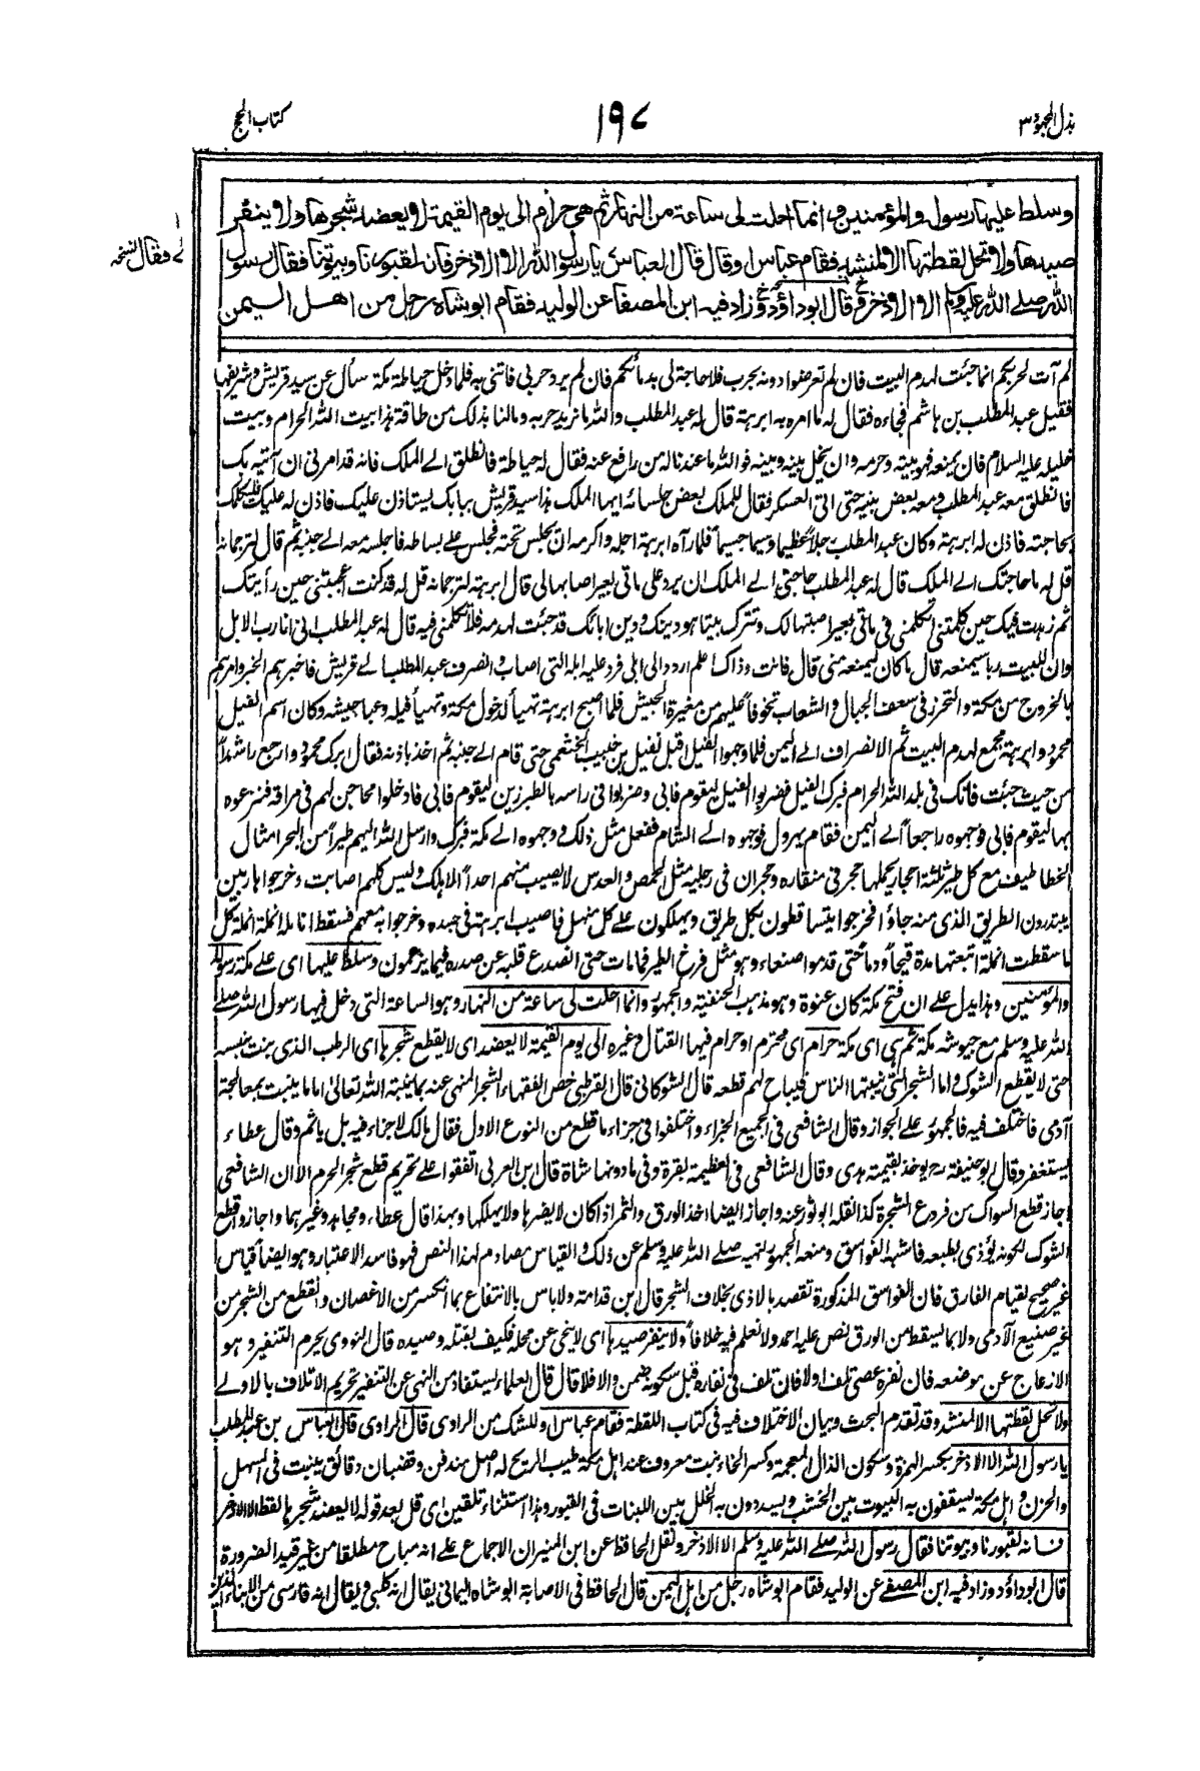 بذل المجهود ٣
١٩٧
كتاب الحج
وسلط عليها رسوله والمؤمنين وانما احلت لى ساعة من النهار ثم هى حرام الى يوم القيمة لا يعضد شجرها ولا ينفر
صيدها ولا تحل لقطتها الا لمنشد فقام عباس او قال قال العباس يا رسول الله الا الاذخر فانه لقبورنا وبيوتنا فقال رسول
الله صلى الله عليه وسلم الا الاذخر قال ابو داؤد وزاد فيه ابن المصفا عن الوليد فقام ابو شاه رجل من اهل اليمن
فقال نسخه
لم آت لحربكم انما جئت لهدم البيت فان لم تعرضوا دونه بحرب فلا حاجة لى بدمائكم فان لم يرد حربى فاتنى به فلما دخل حياطة مكة سأل عن سيد قريش وشريفها
فقيل عبد المطلب بن هاشم فجاءه فقال له ما امره به ابرهة قال له عبد المطلب والله ما نريد حربه وما لنا بذلك من طاقة هذا بيت الله الحرام وبيت
خليله عليه السلام فان يمنعه فهو بيته وحرمه وان يخل بينه وبينه فوالله ما عندنا له من دافع عنه فقال له حياطة فانطلق الى الملك فانه قد امرنى ان آتيه بك
فانطلق معه عبد المطلب ومعه بعض بنيه حتى اتى العسكر فقال للملك بعض جلسائه ايها الملك هذا سيد قريش ببابك يستاذن عليك فاذن له عليك فليكلمك
بحاجته فاذن له ابرهة وكان عبد المطلب رجلاً عظيما وسيما جسيماً فلما رآه ابرهة اجله واكرمه ان يجلس تحته فجلس على بساطه فاجلسه معه الى جنبه ثم قال لترجمانه
قل له ما حاجتك الى الملك قال له عبد المطلب حاجتى الى الملك ان يرد على مأتى بعير اصابها لى قال ابرهة لترجمانه قل له قد كنت اعجبتنى حين رأيتك
ثم زهدت فيك حين كلمتنى اتكلمنى فى مأتى بعير اصبتها لك وتترك بيتا هو دينك ودين ابائك قد جئت لهدمه فلا تكلمنى فيه قال له عبد المطلب انى انا رب الابل
وان للبيت ربا سيمنعه قال ما كان ليمنعه منى قال فانت وذاك اردد الى ابلى فرد عليه ابله التى اصاب وانصرف عبد المطلب الى قريش فاخبرهم الخبر وامرهم
بالخروج من مكة والتحرز فى شعف الجبال والشعاب تخوفاً عليهم من مغيرة الحبيش فلما اصبح ابرهة تهيأ لدخول مكة وتهيأ فيله وعبا جيشه وكان اسم الفيل
محموداً وابرهة مجمع لهدم البيت ثم الانصراف الى اليمن فلما وجهوا الفيل اقبل نفيل بن حبيب الخثعمى حتى قام الى جنبه ثم اخذ باذنه فقال ابرك محمود وارجع راشداً
من حيث جئت فانك فى بلد الله الحرام فبرك الفيل فضربوا الفيل ليقوم فابى وضربوا فى راسه بالطبرزين ليقوم فابى فادخلوا محاجن لهم فى مراقه فبزغوه
بها ليقوم فابى فوجهوه راجعاً الى اليمن فقام يهرول فوجهوه الى الشام ففعل مثل ذلك ووجهوه الى مكة فبرك وارسل الله اليهم طيراً من البحر امثال
الخطاطيف مع كل طير ثلثة احجار يحملها حجر فى منقاره وحجران فى رجليه مثل الحمص والعدس لا يصيب منهم احداً الا هلك وليس كلهم اصابت وخرجوا هاربين
يبتدرون الطريق الذى منه جاؤا فخرجوا يتساقطون بكل طريق ويهلكون على كل منهل فاصيب ابرهة فى جسده وخرجوا به معهم فسقط انامله انملة انملة كل
ما سقطت انملة اتبعتها مدة قيحاً ودماً حتى قدموا صنعاء وهو مثل فرخ الطير فما مات حتى انصدع قلبه عن صدره فيما يزعمون وسلط عليها اى على مكة رسوله
والمؤمنين وهذا يدل على ان فتح مكة كان عنوة وهو مذهب الحنفية والجمهور وانما احلت لى ساعة من النهار وهو الساعة التى دخل فيها رسول الله صلى
الله عليه وسلم مع جيوشه مكة ثم هى اى مكة حرام اى محترم او حرام فيها القتال وغيره الى يوم القيمة لا يعضد اى لا يقطع شجرها اى الرطب الذى ينبت بنفسه
حتى لا يقطع الشوك واما الشجر التى ينبتها الناس فيباح لهم قطعه قال الشوكانى قال القرطبى خص الفقهاء الشجر المنهى عنه بما ينبته الله تعالى اما ما ينبت بمعالجة
آدمى فاختلف فيه فالجمهور على الجواز وقال الشافعى فى الجميع الجزاء واختلفوا فى جزاء ما قطع من النوع الاول فقال مالك لا جزاء فيه بل ياثم وقال عطاء
يستغفر وقال ابو حنيفة رح يوخذ بقيمته هدى وقال الشافعى فى العظيمة بقرة وفى ما دونها شاة قال ابن العربى اتفقوا على تحريم قطع شجر الحرم الا ان الشافعى
اجاز قطع السواك من فروع الشجرة كذا نقله ابو ثور عنه واجاز ايضا اخذ الورق والثمر اذا كان لا يضرها ولا يهلكها وبهذا قال عطاء ومجاهد وغيرهما واجازوا قطع
الشوك لكونه يؤذى بطبعه فاشبه الفواسق ومنعه الجمهور لنهيه صلى الله عليه وسلم عن ذلك والقياس مصادم لهذا النص فهو فاسد الاعتبار وهو ايضاً قياس
غير صحيح لقيام الفارق فان الفواسق المذكورة تقصد بالاذى بخلاف الشجر قال ابن قدامة ولا باس بالانتفاع بما انكسر من الاغصان وانقطع من الشجر من
غير صنيع الآدمى ولا بما يسقط من الورق نص عليه احمد ولا نعلم فيه خلافاً ولا ينفر صيدها اى لا ينحى عن محله فكيف بقتله وصيده قال النووى يحرم التنفير وهو
الازعاج عن موضعه فان نفره عصى تلف اولا فان تلف فى نفاره قبل سكونه ضمن والا فلا قال قال العلماء يستفاد من النهى عن التنفير تحريم الاتلاف بالاولى
ولا تحل لقطتها الا لمنشد وقد تقدم البحث وبيان الاختلاف فيه فى كتاب اللقطة فقام عباس او للشك من الراوى قال الراوى قال العباس بن عبد المطلب
يا رسول الله الا الاذخر بكسر الهمزة وسكون الذال المعجمة وكسر الخاء نبت معروف عند اهل مكة طيب الريح له اصل مندفن وقضبان دقائق ينبت فى السهل
والحزن واهل مكة يسقفون به البيوت بين الخشب ويسددون به الخلل بين اللبنات فى القبور وهذا استثناء تلقين اى قل بعد قوله لا يعضد شجرها لفظ الا الاذخر
فانه لقبورنا وبيوتنا فقال رسول الله صلى الله عليه وسلم الا الاذخر ونقل الحافظ عن ابن المنير ان الاجماع على انه مباح مطلقا من غير قيد الضرورة
قال ابو داؤد وزاد فيه ابن المصفى عن الوليد فقام ابو شاه رجل من اهل اليمن قال الحافظ فى الاصابة ابو شاه اليمانى يقال انه كلبى ويقال انه فارسى من الابناء الذين